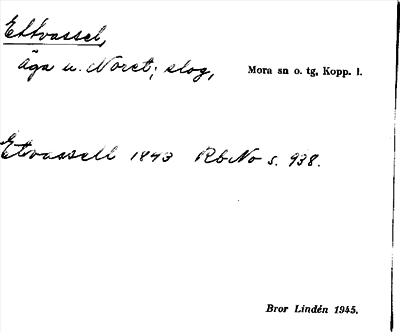 Ettvassel,
äga u. Noret; slog, Mora sn o. tg, Kopp. l.
Etvassell 1843 RbNo s. 938.
Bror Lindén 1945.